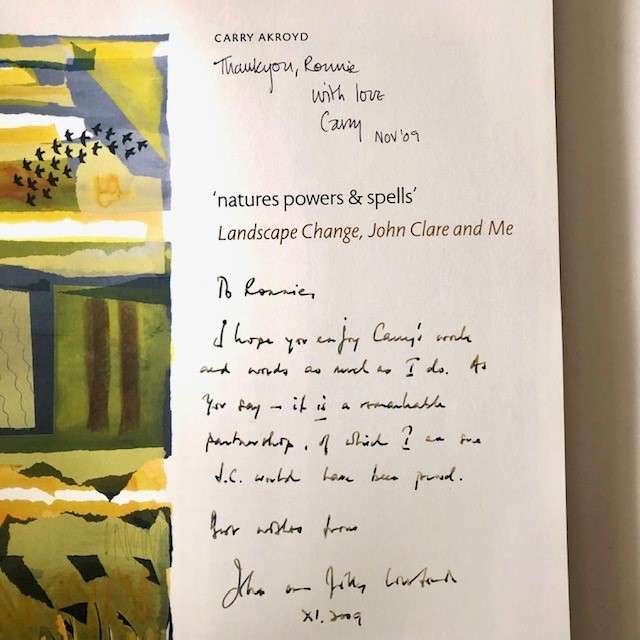 CARRY AKROYD
Thankyou, Ronnie
with love
Carry
NOV '09
'natures powers & spells'
Landscape Change, John Clare and Me
To Ronnie,
I hope you enjoy Carry's work
and words as much as I do. As
you say – it is a remarkable
partnership, of which I am sure
J.C. would have been proud.
Best wishes from
John
XI. 2009